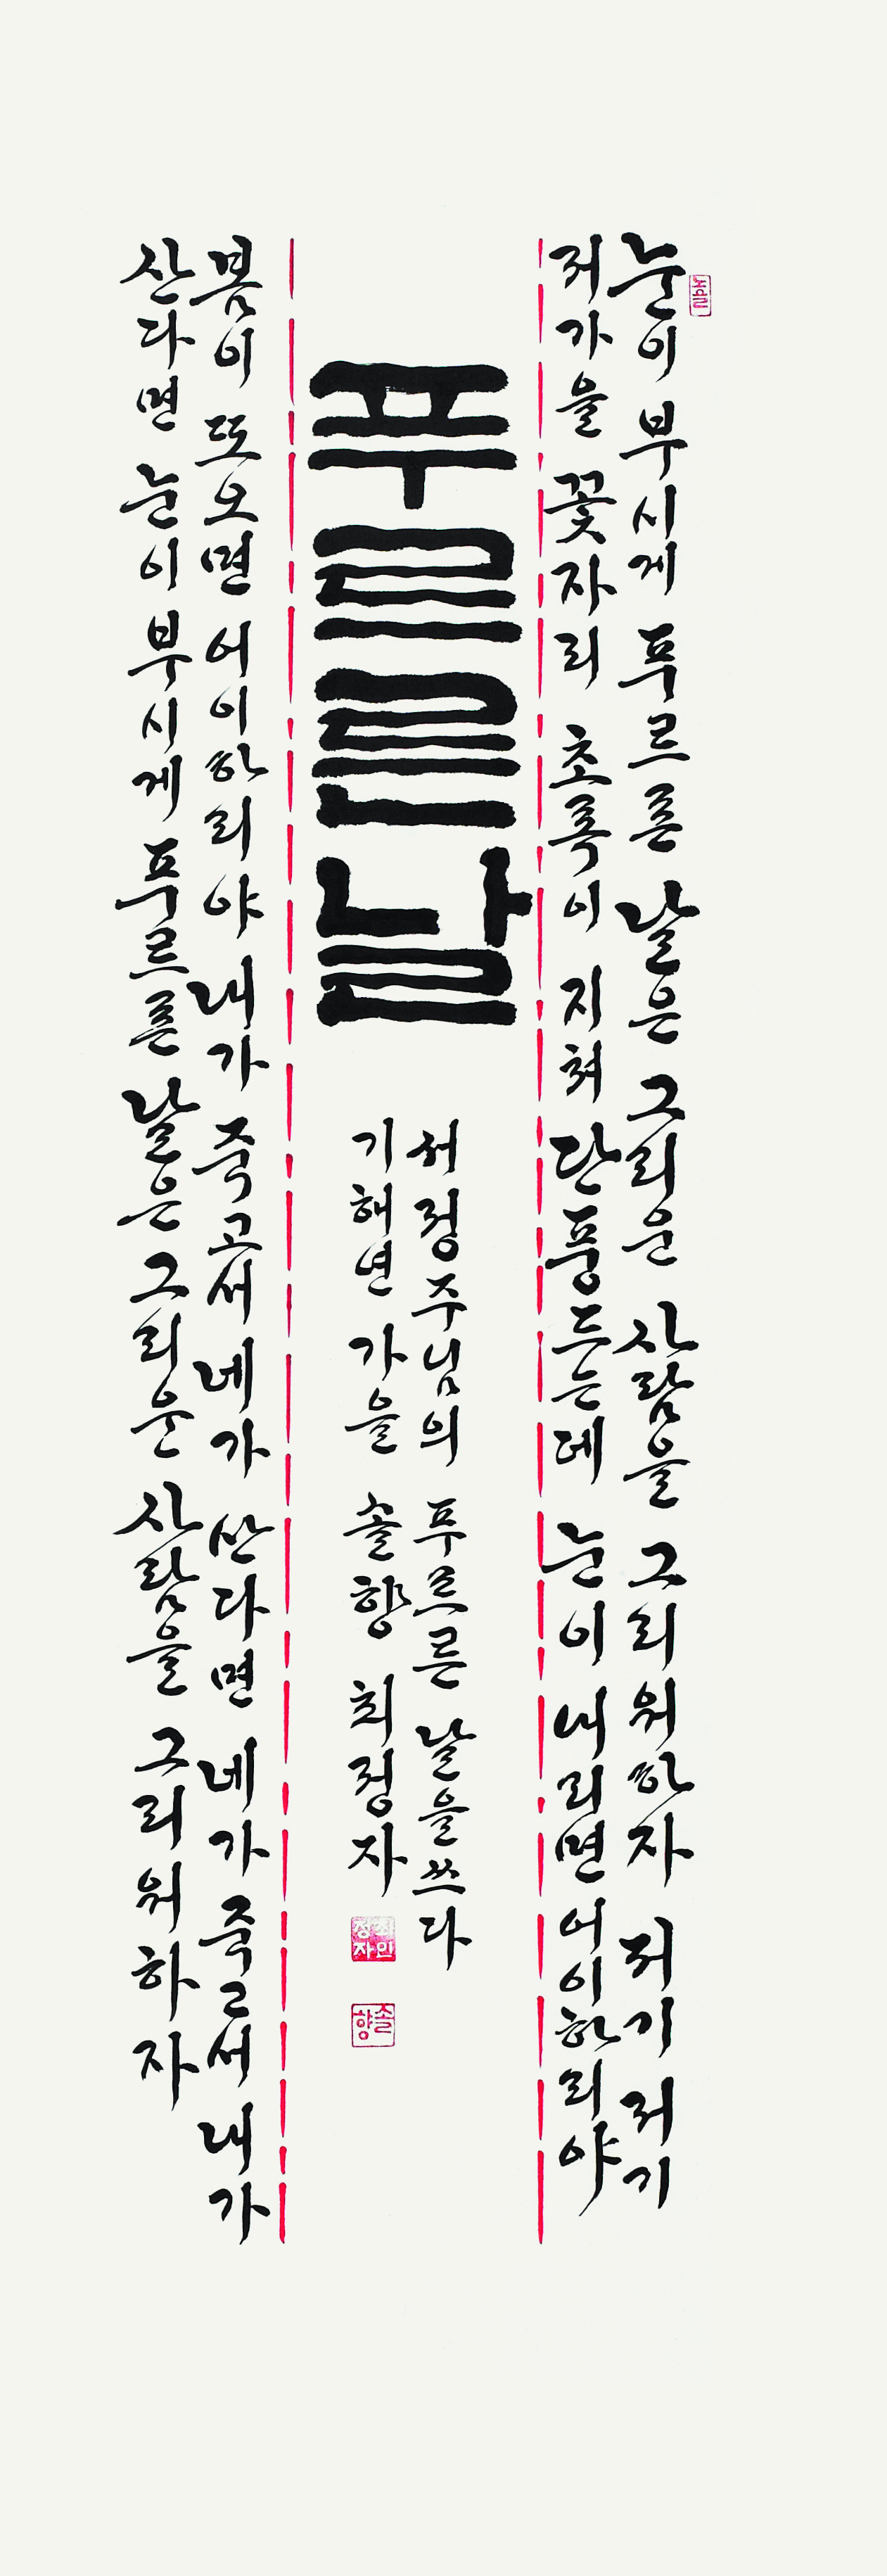 눈이 부시게 푸르른 날은 그리운 사람을 그리워하자 저기 저기
저 가을 꽃자리 초록이 지쳐 단풍드는데 눈이 내리면 어이하리야
푸르른 날
서정주님의 푸르른 날을 쓰다
기해년 가을 솔향 최정자
최인
정자
솔향
봄이 또오면 어이하리야 내가 죽고서 네가 산다면 네가 죽고서 내가
산다면 눈이 부시게 푸르른 날은 그리운 사람을 그리워하자